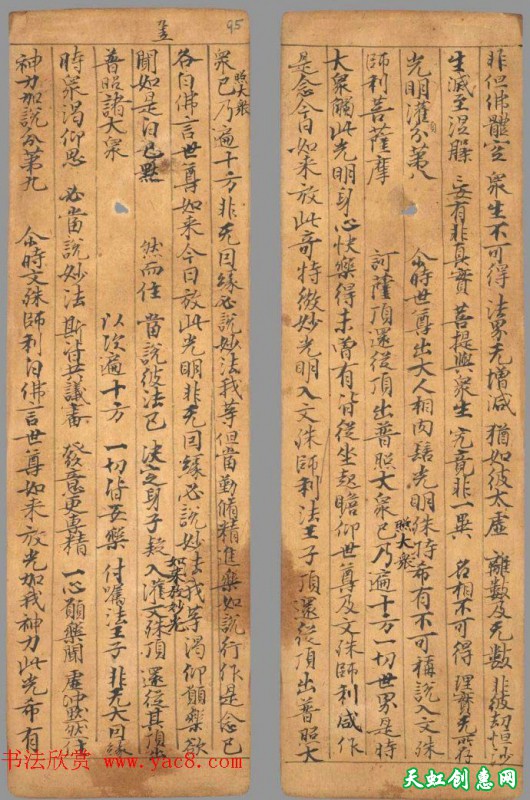 非但佛體空 衆生不可得 法界无增減 猶如彼太虛 離數及无數 非彼劫恒沙
生滅至涅槃 三有非真實 菩提與衆生 究竟非一異 名相不可得 理齊无所存
光明灌分第 尒時世尊出大人相肉髻光明殊特希有不可稱說入文殊
師利菩薩摩 訶薩頂還從頂出普照大衆照大衆已乃遍十方一切世界是時
大衆觸此光明身心快樂得未曾有皆從坐起瞻仰世尊及文殊師利咸作
是念今日如來放此奇特微妙光明入文殊師利法王子頂還從頂出普照大
衆照大衆已乃遍十方非无因緣必說妙法我等但當勤脩精進樂如說行作是念已
各白佛言世尊如來今日放此光明非无因緣必說妙法我等渴仰願樂欲
聞如是白已默 然而住 當說彼法已 決之身子疑 如來放妙光 入灌文殊頂 還從其頂出
普照諸大衆 以次遍十方 一切皆安樂 付囑法王子 非无大因緣
時衆渴仰思 必當說妙法 斯皆共議審 發意更專精 一心願樂聞 虛沖默然住
神力加說分第九 尒時文殊師利白佛言世尊如來放光加我神力此光希有
95
书法欣赏 www.yac8.com
天虹创惠网